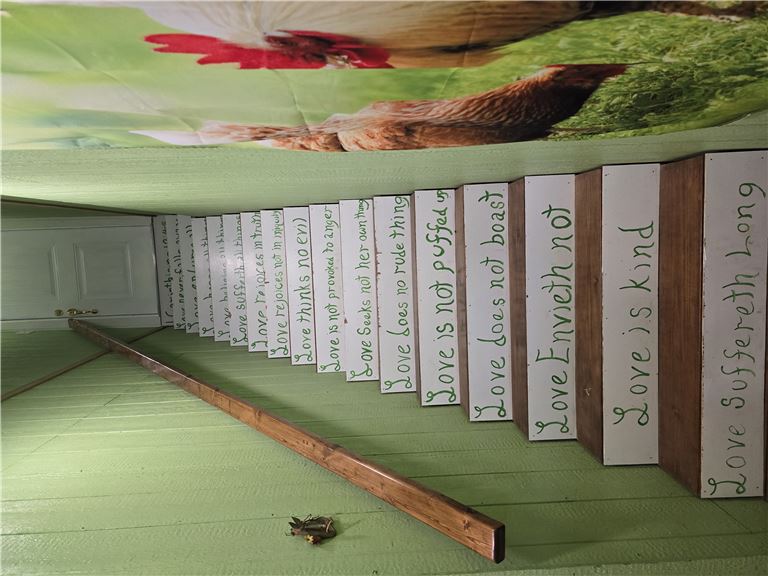 Love never fails
Love hopeth all things
Love believeth all things
Love suffereth all things
Love rejoices in truth
Love rejoices not in iniquity
Love thinks no evil
Love is not provoked to anger
Love seeks not her own things
Love does no rude thing
Love is not puffed up
Love does not boast
Love Envieth not
Love is kind
Love suffereth Long